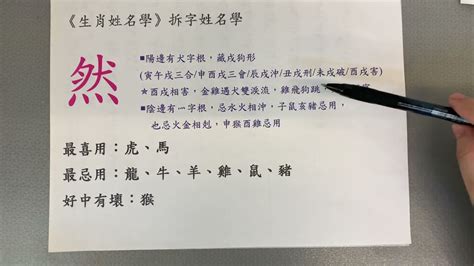 《生肖姓名學》拆字姓名學
然
■陽邊有犬字根，藏戌狗形
(寅午戌三合/申酉戌三會/辰戌沖/丑戌刑/未戌破/酉戌害)
★酉戌相害，金雞遇犬雙淚流，雞飛狗跳
■陰邊有一字根，忌水火相沖，子鼠亥豬忌用，
也忌火金相剋，申猴酉雞忌用
最喜用：虎、馬
最忌用：龍、牛、羊、雞、鼠、豬
好中有壞：猴